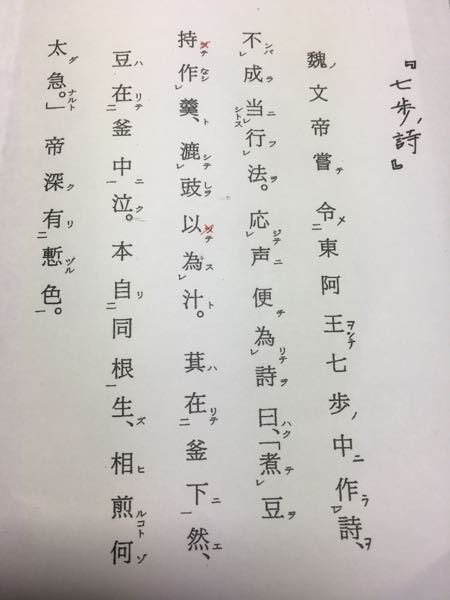 『七歩ノ詩』
魏ノ文帝嘗テ令メ二東阿王ヲシテ七歩ノ中ニ作ラレ詩ヲ、
不ンバレ成ラ当ニシトスレ行フレ法ヲ。応ジテレ声ニ便チ為リテレ詩ヲ曰ハク、「煮テレ豆ヲ
持テ作なシレ羹ト、漉シテレ豉しヲ以テ為スレ汁ト。萁ハ在リテ二釜下ニ一然エ、
豆ハ在リテ二釜中ニ一泣ク。本自リ二同根一生ズ、相ヒ煎ルコト何ゾ
太ダ急ナルト。」帝深ク有リ二慙ヅル色一。